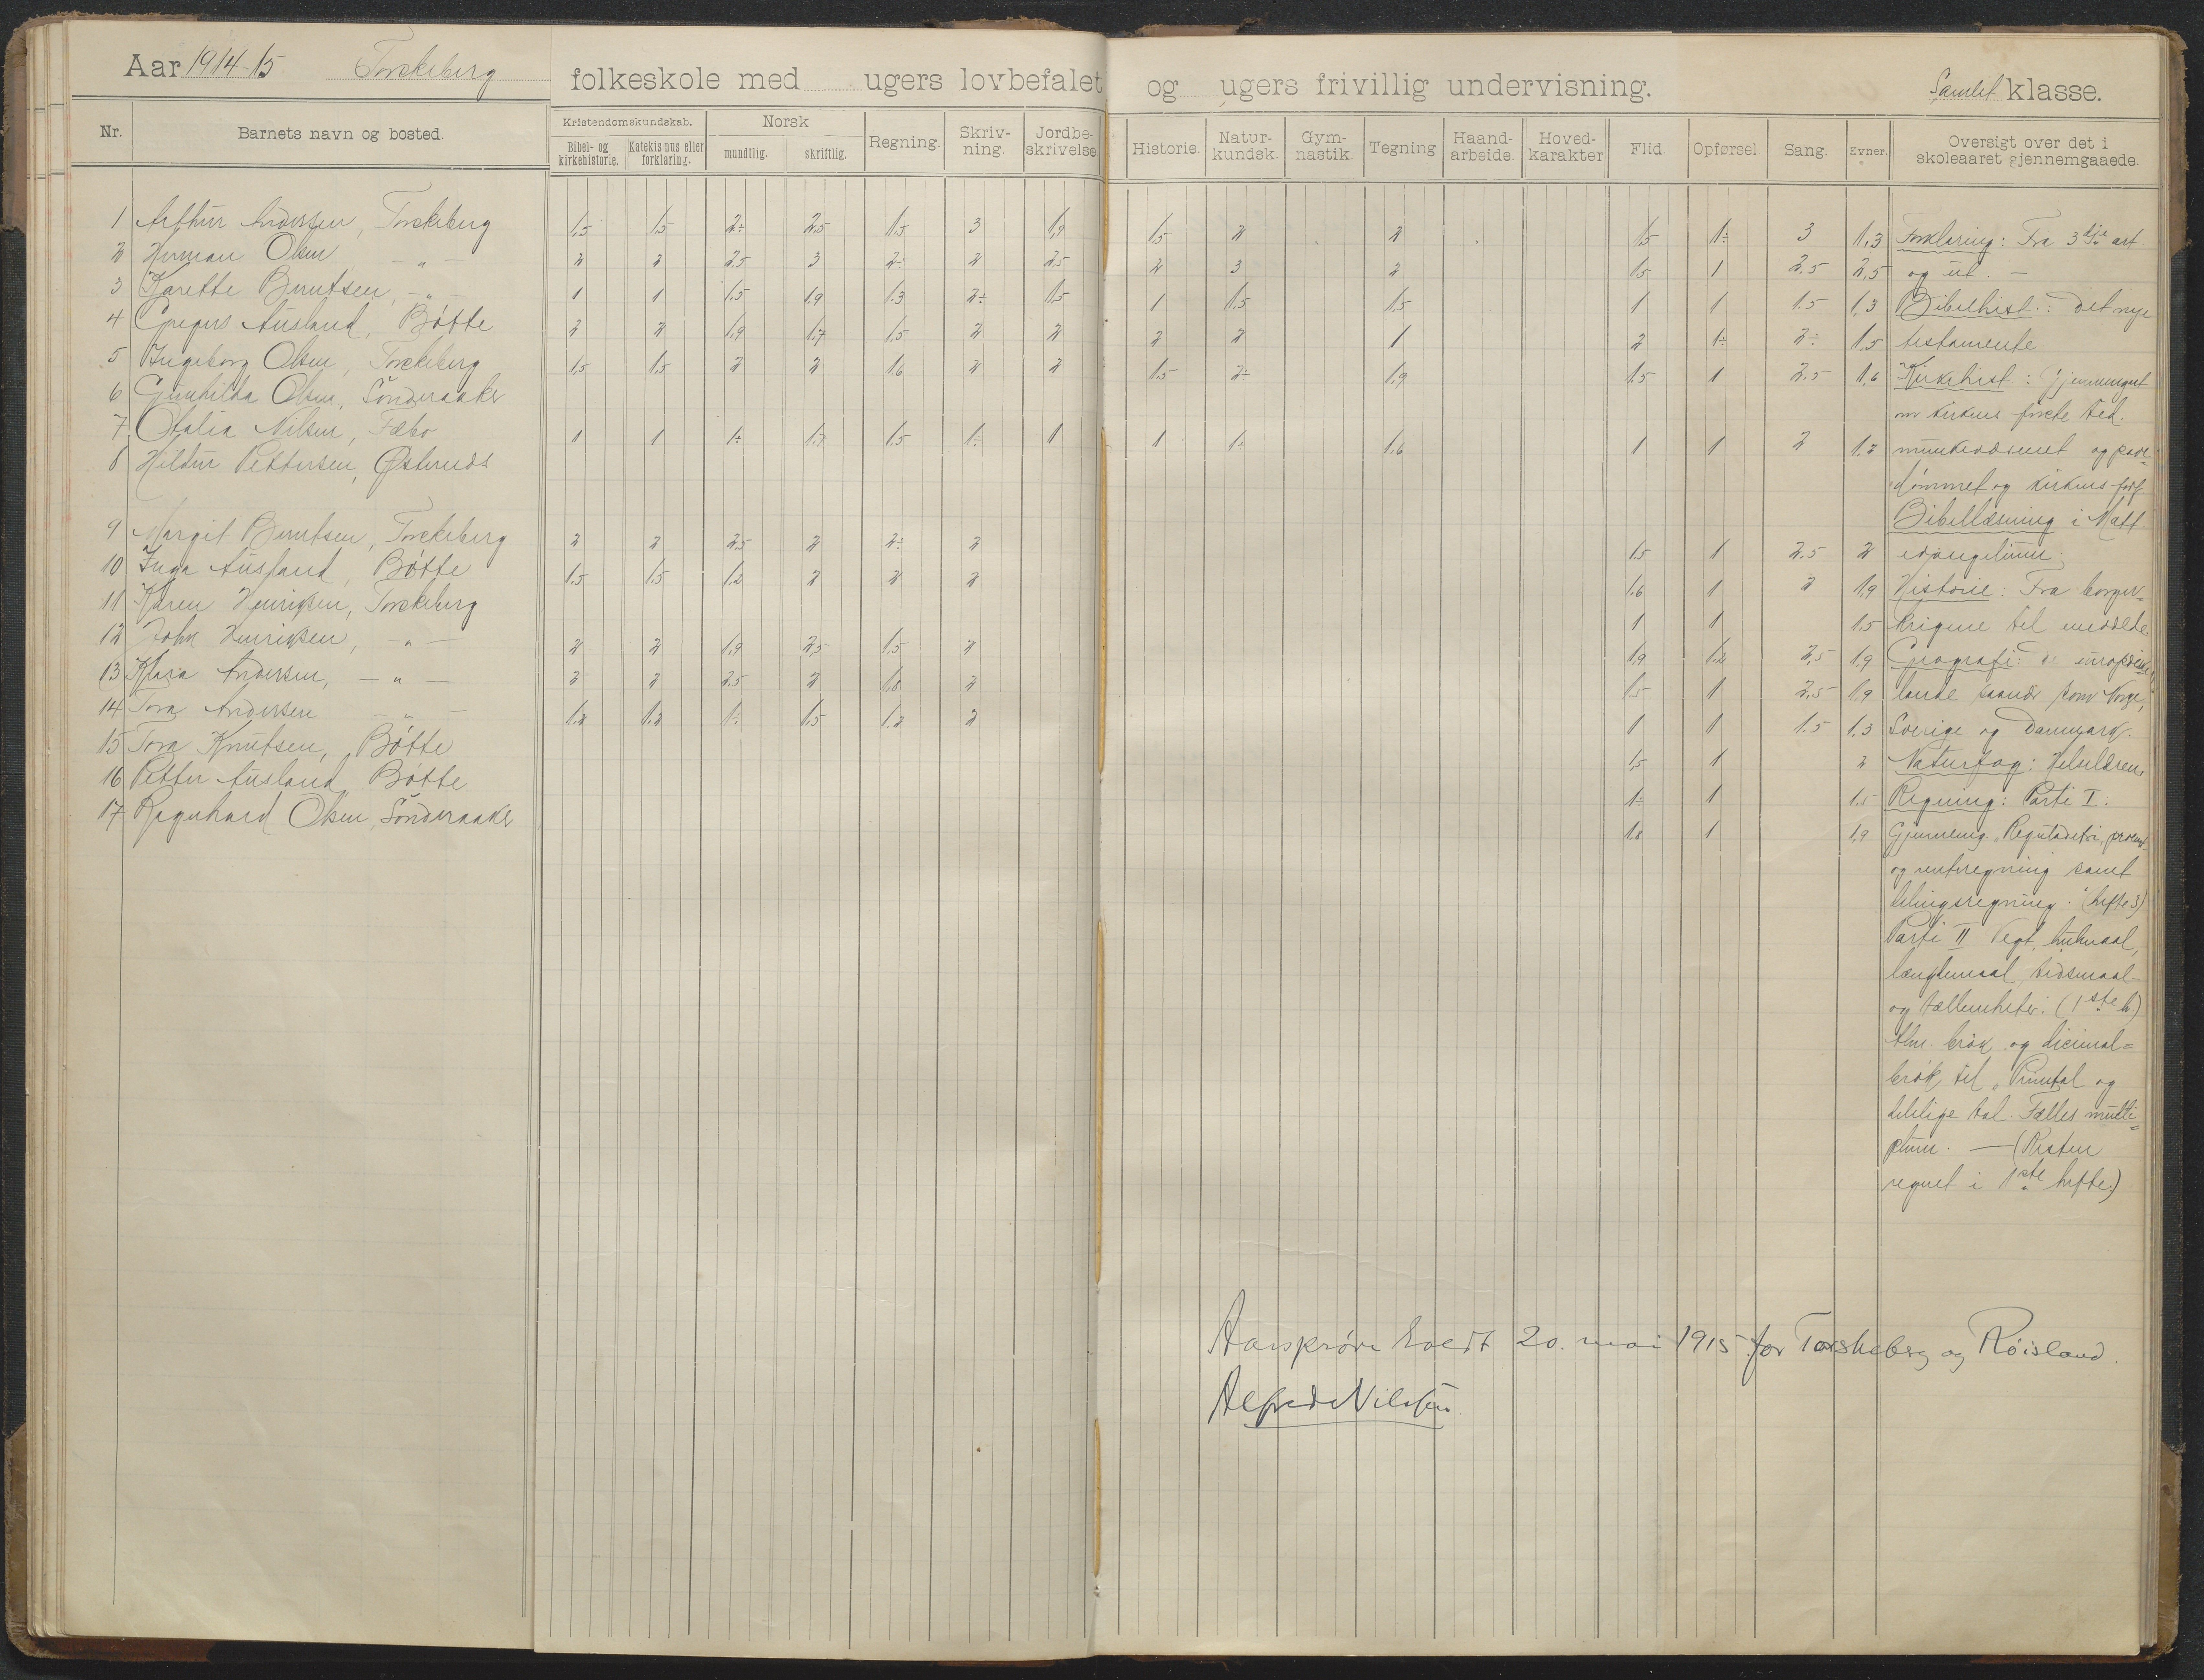 Aar 1914-15 Torskeberg folkeskole med ugers lovbefalet og ugers frivillig undervisning. Samlet klasse.
Nr. Barnets navn og bosted. Kristendomskundskab. Bibel- og kirkehistorie. Katekismus eller forklaring. Norsk mundtlig. skriftlig. Regning. Skriv-ning. Jordbe-skrivelse Historie. Natur-kundsk. Gym-nastik. Tegning Haand-arbeide. Hoved-karakter Flid Opførsel Sang. Evner. Oversigt over det i skoleaaret gjennemgaaede.
1 Arthur Andersen, Torskeberg 1,5 1,5 2÷ 2,5 1,5 3 1,9 1,5 2 2 1,5 1÷ 3 1,3
2 Herman Olsen — „ — 2 2 2,5 3 2÷ 2 2,5 2 3 2 1,5 1 2,5 2,5
3 Karette Bentsen, — „ — 1 1 1,5 1,9 1,3 2÷ 1,5 1 1,5 1,5 1 1 1,5 1,3
4 Gregers Ausland, Bótte 2 2 1,9 1,7 1,5 2 2 2 2 1 2 1÷ 2÷ 1,5
5 Ingeborg Olsen, Torskeberg 1,5 1,5 2 2 1,6 2 2 1,5 2÷ 1,9 1,5 1 2,5 1,6
6 Gunhilda Olsen, Sönderaaker
7 Otalia Nilsen, Fæbo 1 1 1÷ 1,7 1,5 1÷ 1 1 1÷ 1,6 1 1 2 1,2
8 Hildur Pettersen, Østeruds
9 Margit Bentsen, Torskeberg 2 2 2,5 2 2÷ 2 1,5 1 2,5 2
10 Inga Ausland, Bótte 1,5 1,5 1,2 2 2 2 1,6 1 2 1,9
11 Karen Henriksen, Torskeberg 1 1 1,5
12 John Henriksen, — „ — 2 2 1,9 2,5 1,5 2 1,9 1,2 2,5 1,9
13 Klara Andersen, — „ — 2 2 2,5 2 1,8 2 1,5 1 2,5 1,9
14 Tora Andersen — „ — 1,2 1,2 1÷ 1,5 1,2 2 1 1 1.5 1,3
15 Tora Knutsen, Bótte 1,5 1 2
16 Petter Ausland, Bótte 1÷ 1 1.5
17 Ragnhard Olsen, Sönderaaker 1.8 1 1,9
Forklaring: Fra 3dje art.
og ut. —
Bibelhist.: Det nye
testamente
Kirkehist: Gjennemgaat
om kirkens første tid.
munkevæsenet og pave=
dømmet og kirkens forf.
Bibellæsning i Matt
evangelium.
Historie: Fra borger=
krigene til
Geografi: De europæiske
lande saanær som Norge,
Sverige og Danmark.
Naturfag:
Regning: Parti I:
Gjennemg. Regutadetri, procent-
og renteregning samt
delingsregning. (hefte 3)
Parti II Vegt, hulmaal,
længdemaal, tidsmaal
og tælleenheter. (1ste h.)
brøk og decimal=
brøk til „Primtal og
delelige tal. Fælles multi=
plum. — (Resten
regnet i 1ste hefte.)
Aarsprøve holdt 20. mai 1915 for Torskeberg og Røisland.
Alfred Nilssen.